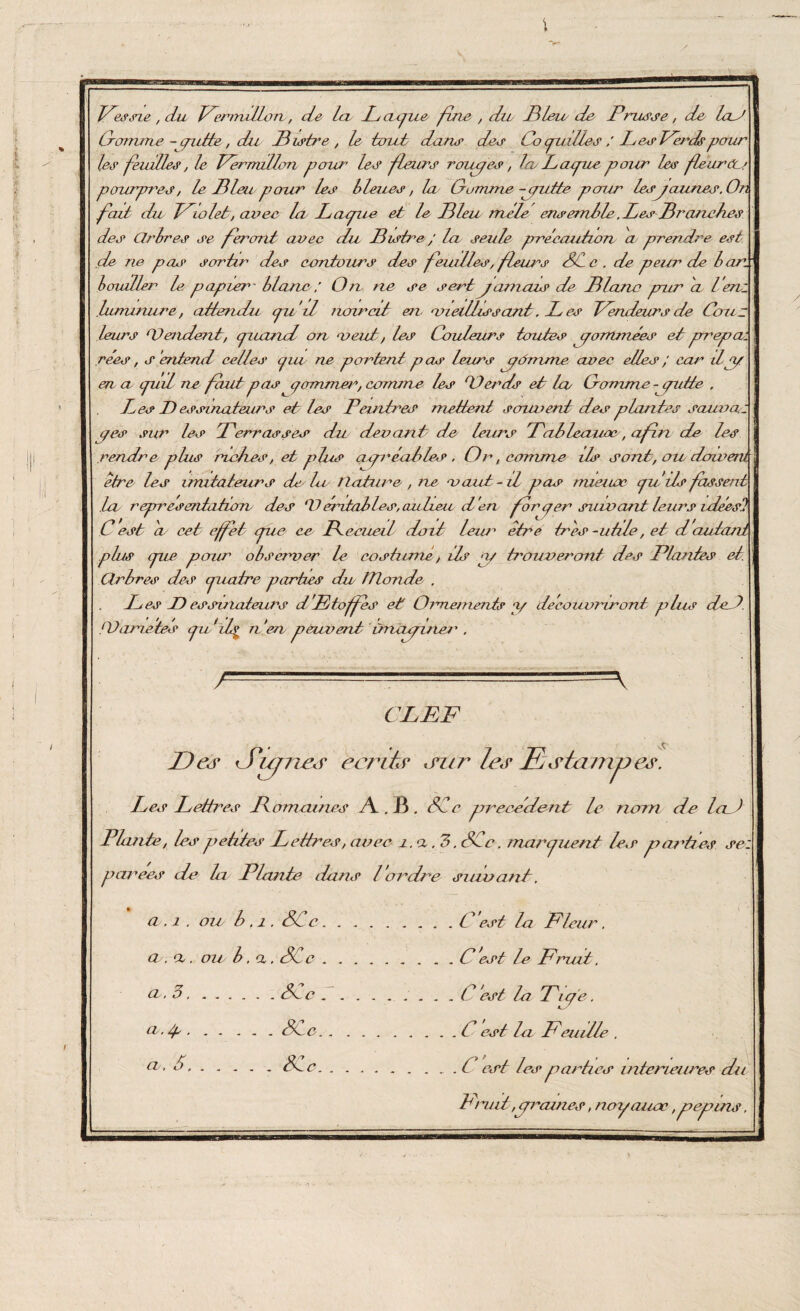 Vessie, du Vermillon, de la Laque fine, du Bleu de Prusse, de la
Gomme-gutte, du Bistre, le tout dans des Coquilles; Les Verds pour
les feuilles, le Vermillon pour les fleurs rouges, la Laque pour les fleurs
pourpres, le Bleu pour les bleues, la Gomme-gutte pour les jaunes. On
fait du Violet, avec la Laque et le Bleu mêlé ensemble. Les Branches
des Arbres se feront avec du Bistre; la seule précaution à prendre est
de ne pas sortir des contours des feuilles, fleurs &c. de peur de bar-
bouiller le papier blanc; On ne se sert jamais de Blanc pur à l'en-
luminure, attendu qu'il noircit en vieillissant. Les Vendeurs de Cou-
leurs Vendent, quand on veut, les Couleurs toutes gommées et prépa-
rées, s'entend celles qui ne portent pas leurs gomme avec elles; car il y
en a qu'il ne faut pas gommer, comme les Verds et la Gomme-gutte.
Les Dessinateurs et les Peintres mettent souvent des plantes sauva-
ges sur les Terrasses du devant de leurs Tableaux, afin de les
rendre plus riches, et plus agréables. Or, comme ils sont, ou doivent
être les imitateurs de la Nature, ne vaut-il pas mieux qu'ils fassent
la représentation des Véritables, au lieu d'en forger suivant leurs idées?
C'est à cet effet que ce Recueil doit leur être très-utile, et d'autant
plus que pour observer le costume, ils y trouveront des Plantes et
Arbres des quatre parties du Monde.
Les Dessinateurs d'Etoffes et Ornements y découvriront plus de
Variétés qu'ils n'en peuvent imaginer.
CLEF
Des Signes ecrits sur les Estampes.
Les Lettres Romaines A.B. &c precedent le nom de la
Plante, les petites Lettres, avec 1.2.3. &c. marquent les parties se-
parées de la Plante dans l'ordre suivant.
a.1. ou b.1. &c. . . . . . . . . C'est la Fleur.
a.2. ou b.2. &c . . . . . . . . . C'est le Fruit.
a.3. . . . . . . &c . . . . . . . . . C'est la Tige.
a.4. . . . . . . &c. . . . . . . . . . C'est la Feuille.
a.5. . . . . . . &c. . . . . . . . . . C'est les parties interieures du
Fruit, graines, noyaux, pepins.